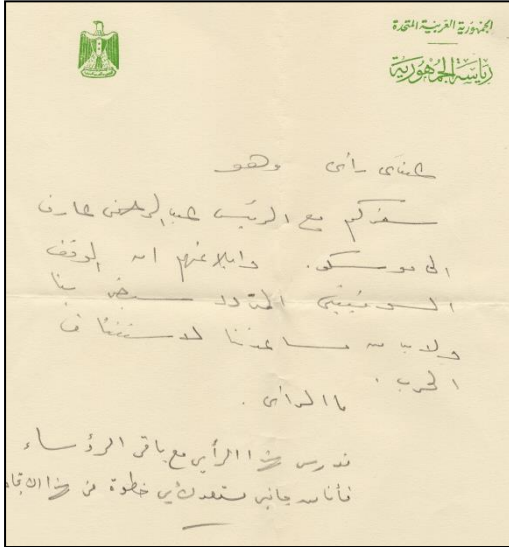 الجمهورية العربية المتحدة
رياسة الجمهورية
هناك رأى وهو
سفركم مع الرئيس عبد الرحمن عارف
الى موسكو. وابلاغهم ان الموقف
السوفييتى المتردد سيضر بنا
ولابد من مساعدتنا لاستئناف
الحرب.
ما الرأى.
ندرس هذا الرأى مع باقى الرؤساء
فأنا من جانبى مستعد لأى خطوة فى هذا الاتجاه